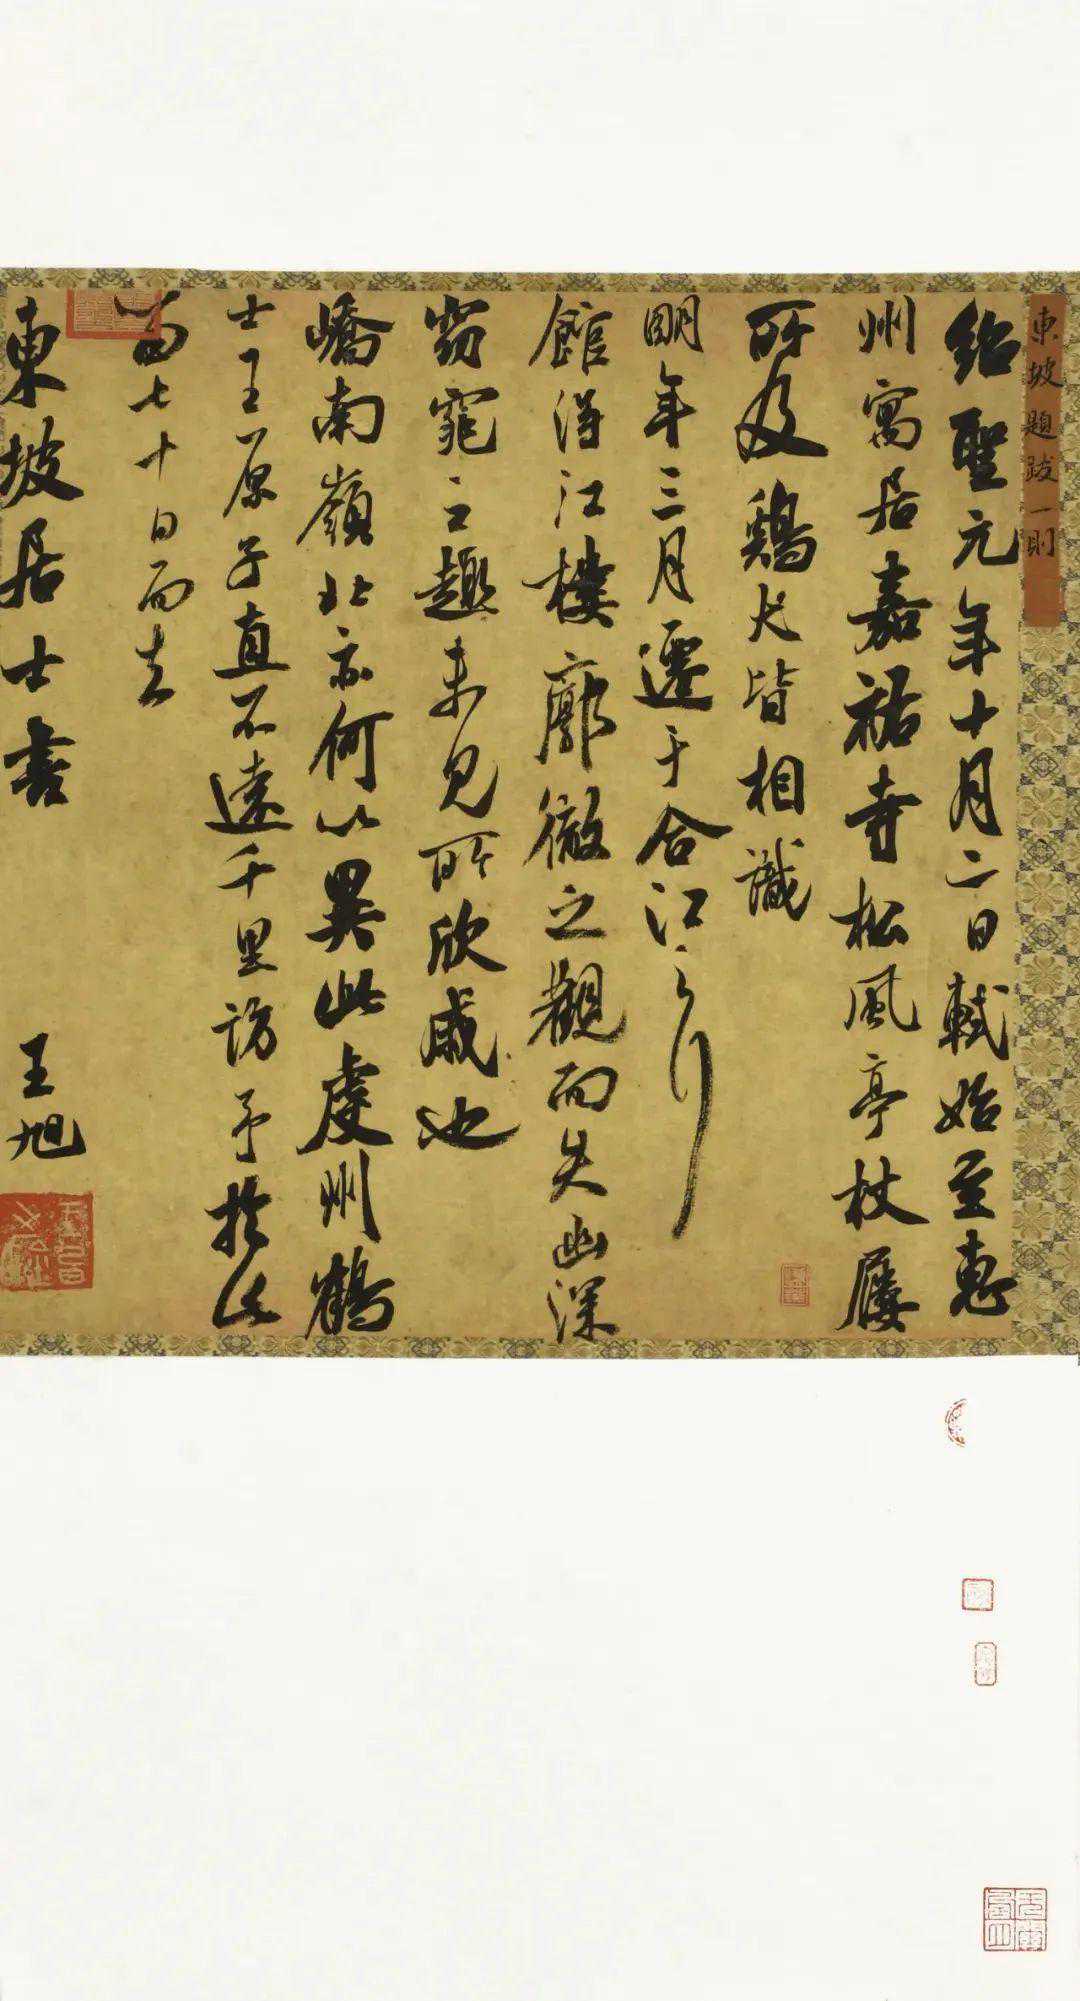 東坡題跋一則
紹聖元年十月二日軾始至惠
州寓居嘉祐寺松風亭杖屨
所及鷄犬皆相識
明年三月遷于合江之行
館得江樓廓徹之觀而失幽深
窈窕之趣未見所欣戚也
嶠南嶺北亦何以異此虔州鶴
士王原子直不遠千里訪予於此
留七十日而去
東坡居士書
王旭